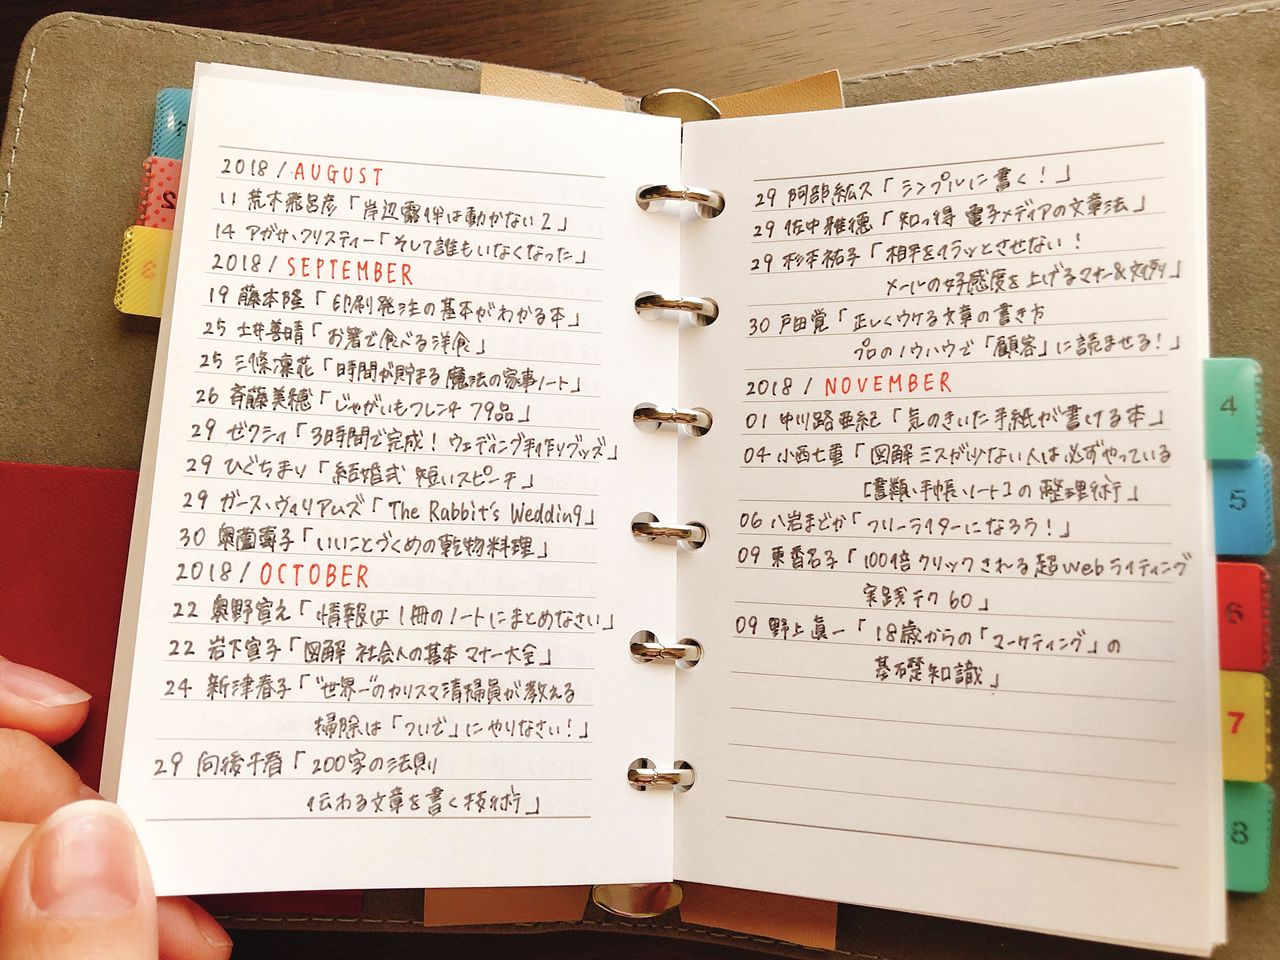 2018 / AUGUST
11 荒木飛呂彦「岸辺露伴は動かない 2」
14 アガサ・クリスティー「そして誰もいなくなった」
2018 / SEPTEMBER
19 藤本隆「印刷発注の基本がわかる本」
25 土井善晴「お箸で食べる洋食」
25 三條凛花「時間が貯まる 魔法の家事ノート」
26 斉藤美穂「じゃがいもフレンチ 79品」
29 ゼクシィ「3時間で完成! ウェディング手作りグッズ」
29 ひぐちまり「結婚式 短いスピーチ」
29 ガース・ウィリアムズ「The Rabbit's Wedding」
30 奥薗壽子「いいことづくめの乾物料理」
2018 / OCTOBER
22 奥野宣之「情報は1冊のノートにまとめなさい」
22 岩下宣子「図解 社会人の基本 マナー大全」
24 新津春子「"世界一"のカリスマ清掃員が教える
掃除は「ついで」にやりなさい!」
29 向後千春「200字の法則
伝わる文章を書く技術」
29 阿部紘久「シンプルに書く!」
29 佐中雅徳「知っ得 電子メディアの文章法」
29 杉本祐子「相手をイラッとさせない!
メールの好感度を上げるマナー&文例」
30 戸田覚「正しくウケる文章の書き方
プロのノウハウで「顧客」に読ませる!」
2018 / NOVEMBER
01 中川路亜紀「気のきいた手紙が書ける本」
04 小西七重「図解 ミスが少ない人は必ずやっている
[書類・手帳・ノート]の整理術」
06 八岩まどか「フリーライターになろう!」
09 東香名子「100倍クリックされる超Webライティング
実践テク60」
09 野上眞一「18歳からの「マーケティング」の
基礎知識」
2
3
4
5
6
7
8